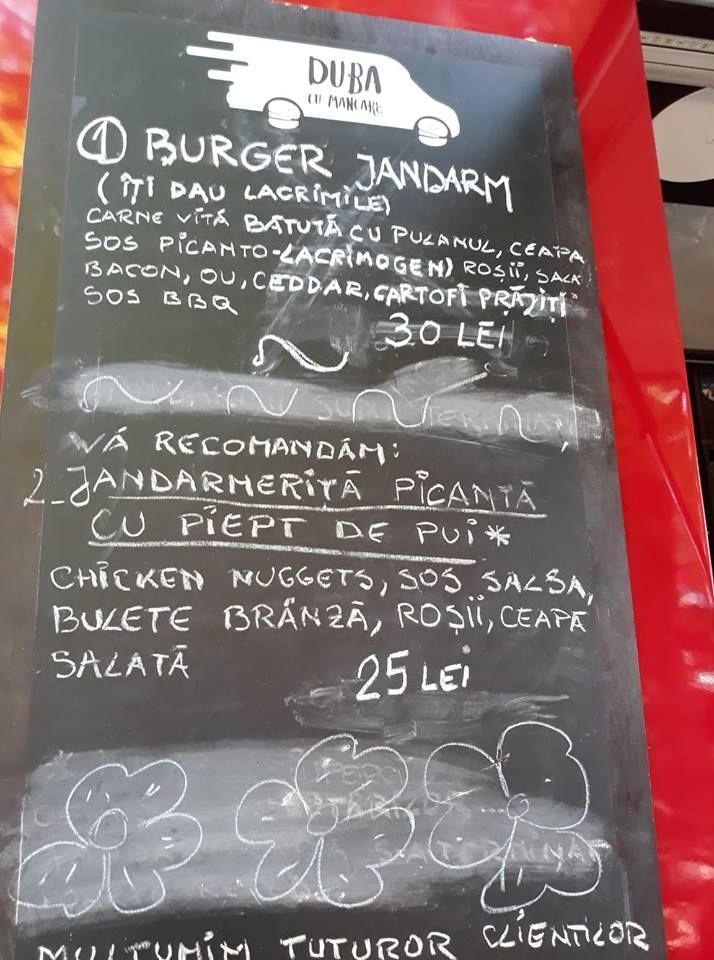 DUBA
CU MANCARE
1 BURGER JANDARM
(ÎȚI DAU LACRIMILE)
CARNE VITĂ BĂTUTĂ CU PULANUL, CEAPA
SOS PICANTO-LACRIMOGEN) ROȘII, SALA
BACON, OU, CEDDAR, CARTOFI PRĂJIȚI
SOS BBQ
30 LEI
VĂ RECOMANDĂM:
2_JANDARMERIȚĂ PICANTĂ
CU PIEPT DE PUI*
CHICKEN NUGGETS, SOS SALSA,
BULETE BRÂNZĂ, ROȘII, CEAPĂ
SALATĂ
25 LEI
MULTUMIM TUTUROR CLIENTILOR